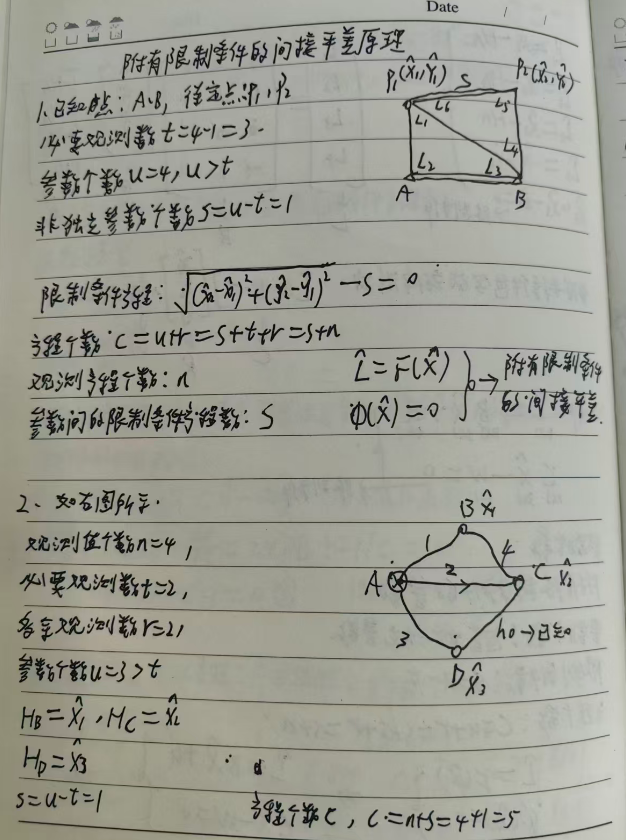 Date / /
附有限制条件的间接平差原理
1、已知点：A、B，待定点：P1、P2
必要观测数t=4-1=3.
参数个数u=4,u>t
非独立参数个数s=u-t=1
P1(X̂1,Ŷ1) S P2(X̂2,Ŷ2)
L1 L6 L5
L4
L2 L3
A B
限制条件方程：√(x̂2-x̂1)²+(ŷ2-ŷ1)² -S=0
方程个数:C=u+r=s+t+r=s+n
观测方程个数：n
参数间的限制条件方程数：S
L̂=F(X̂)
Φ(X̂)=0
→附有限制条件
的间接平差.
2、如右图所示.
观测值个数n=4,
必要观测数t=2,
多余观测数r=2,
参数个数u=3>t
HB=X̂1,HC=X̂2
HD=X̂3
s=u-t=1
方程个数C，C=n+s=4+1=5
B X̂1
1 4
A 2 C X̂2
3 h0→已知
D X̂3